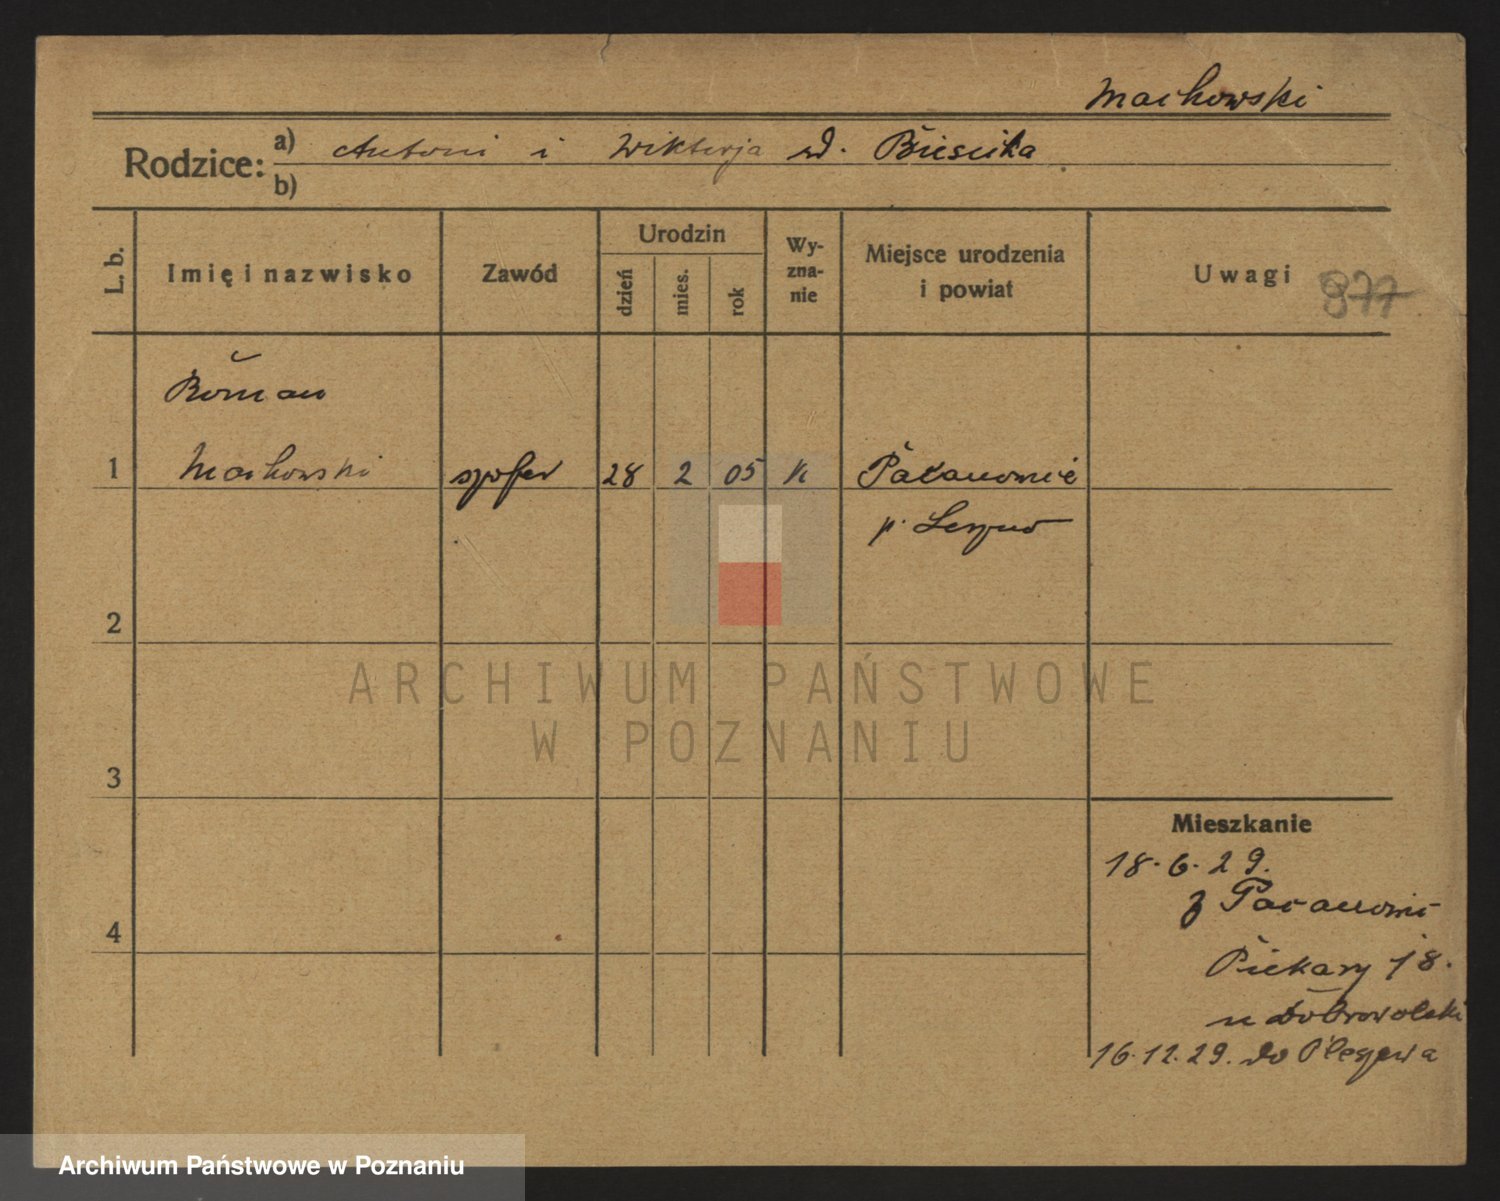 Maihowski
Rodzice: a) Antoni i Wiktorja zd.
b)
L. b.
Imię i nazwisko
Zawód
Urodzin
dzień
mies.
rok
Wy-
zna-
nie
Miejsce urodzenia
i powiat
Uwagi 877
Roman
1 Maihowski szofer 28 2 05 K
p. Leszno
2
3
4
Mieszkanie
18.6.29.
z
Piekary 18.
u Dobrowolski
16.12.29. do Pleszewa
ARCHIWUM PAŃSTWOWE
W POZNANIU
Archiwum Państwowe w Poznaniu